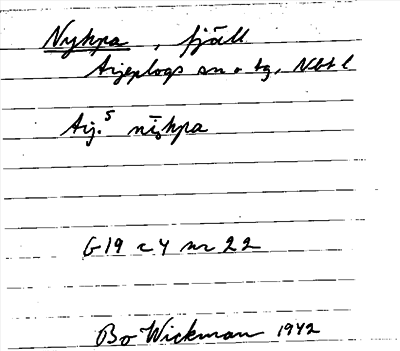 Nyhpa, fjäll
Arjeplogs sn o tg, Nbt l
Arj.s nīhpa
G19 c 4 nr 22
Bo Wickman 1942